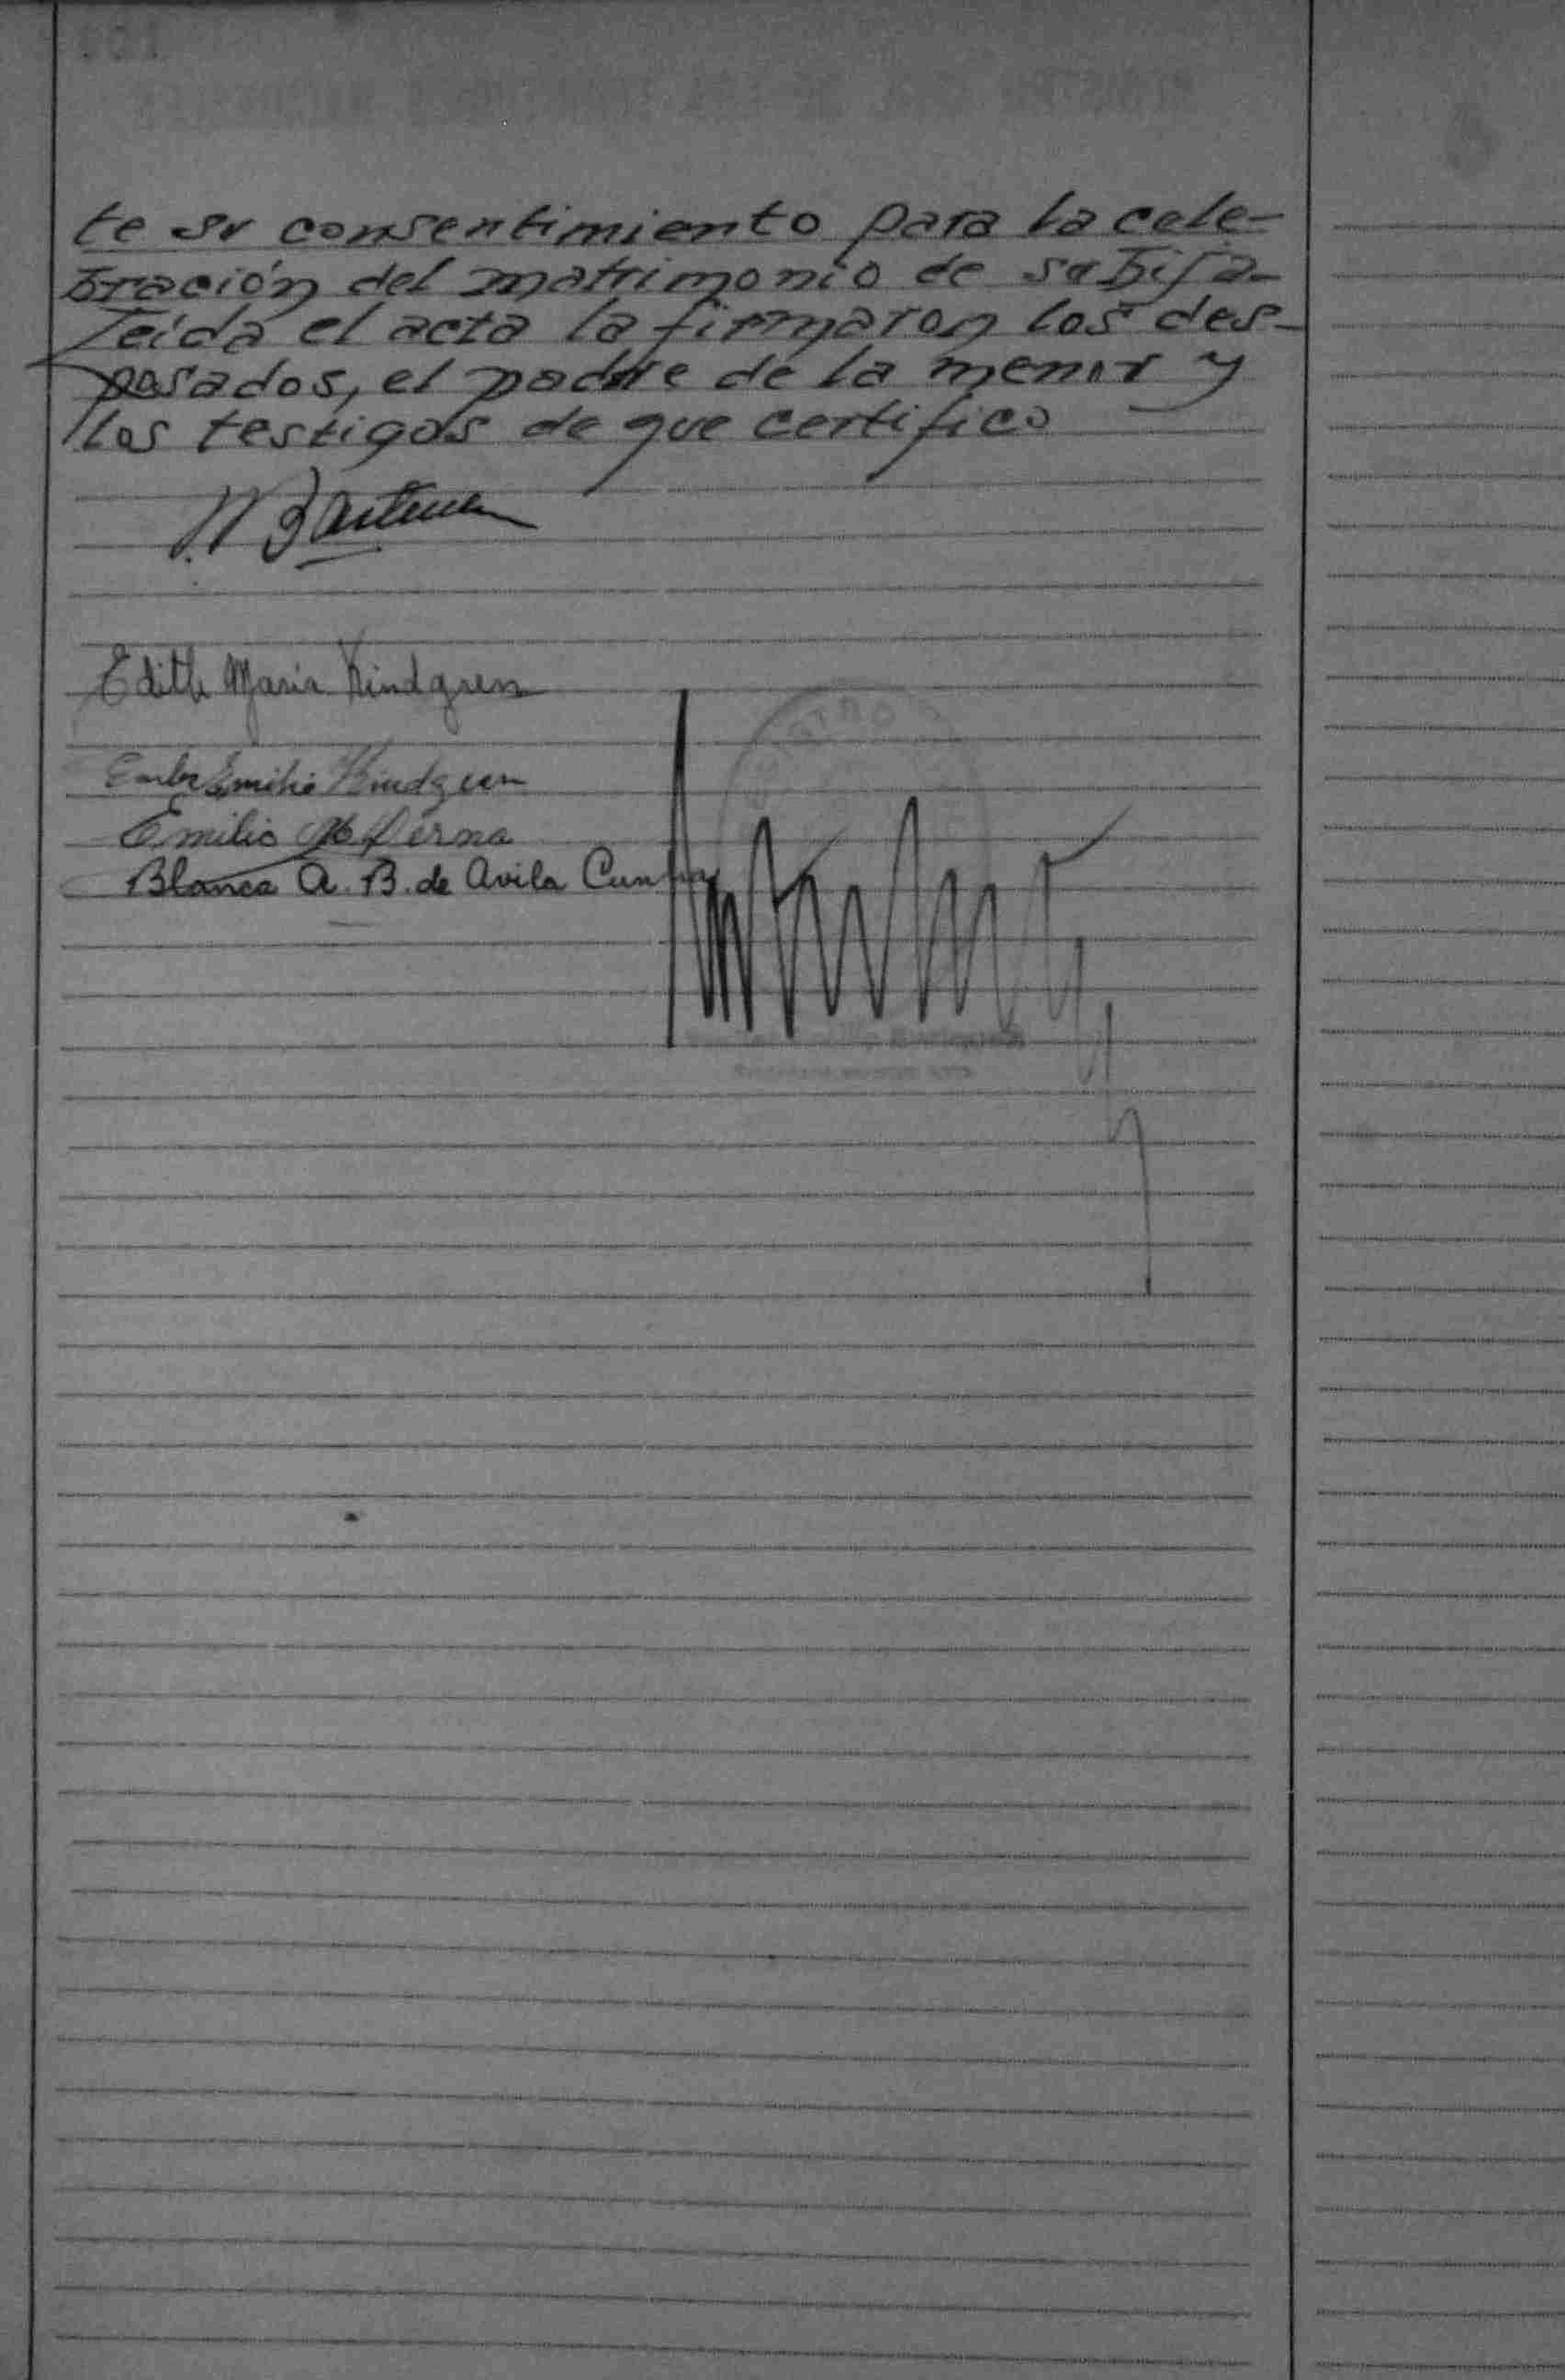 te su consentimiento para la cele-
bración del matrimonio de su hija-
Leída el acta la firmaron los des-
posados, el padre de la menor y
los testigos de que certifico
Edith María Kindgren
Emilio Kindgren
Emilio
Blanca A. B. de Avila Cunha